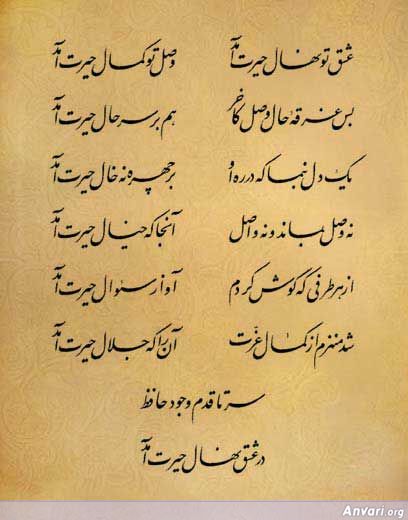 عشق تو نهال حیرت آمد وصل تو کمال حیرت آمد
بس غرقه حال وصل کآخر هم بر سر حال حیرت آمد
یک دل بنما که در ره او بر چهره نه خال حیرت آمد
نه وصل بماند و نه واصل آنجا که خیال حیرت آمد
از هر طرفی که گوش کردم آواز سئوال حیرت آمد
شد منهزم از کمال عزت آن را که جلال حیرت آمد
سر تا قدم وجود حافظ
در عشق نهال حیرت آمد
Anvari.org